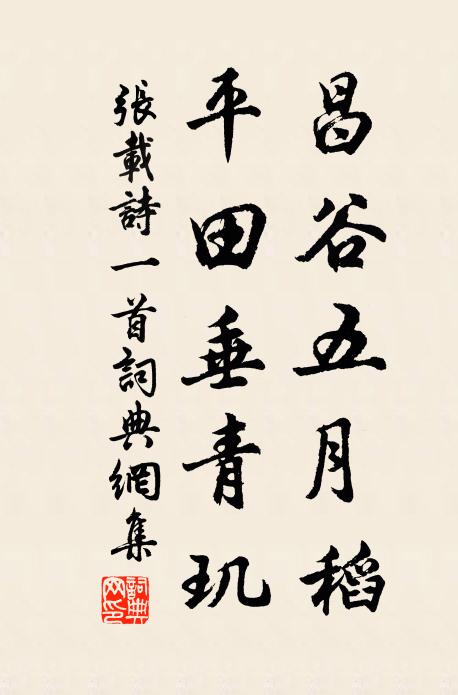 昌谷五月稻
平田垂青玑
張載詩一首詞典網集
詞典